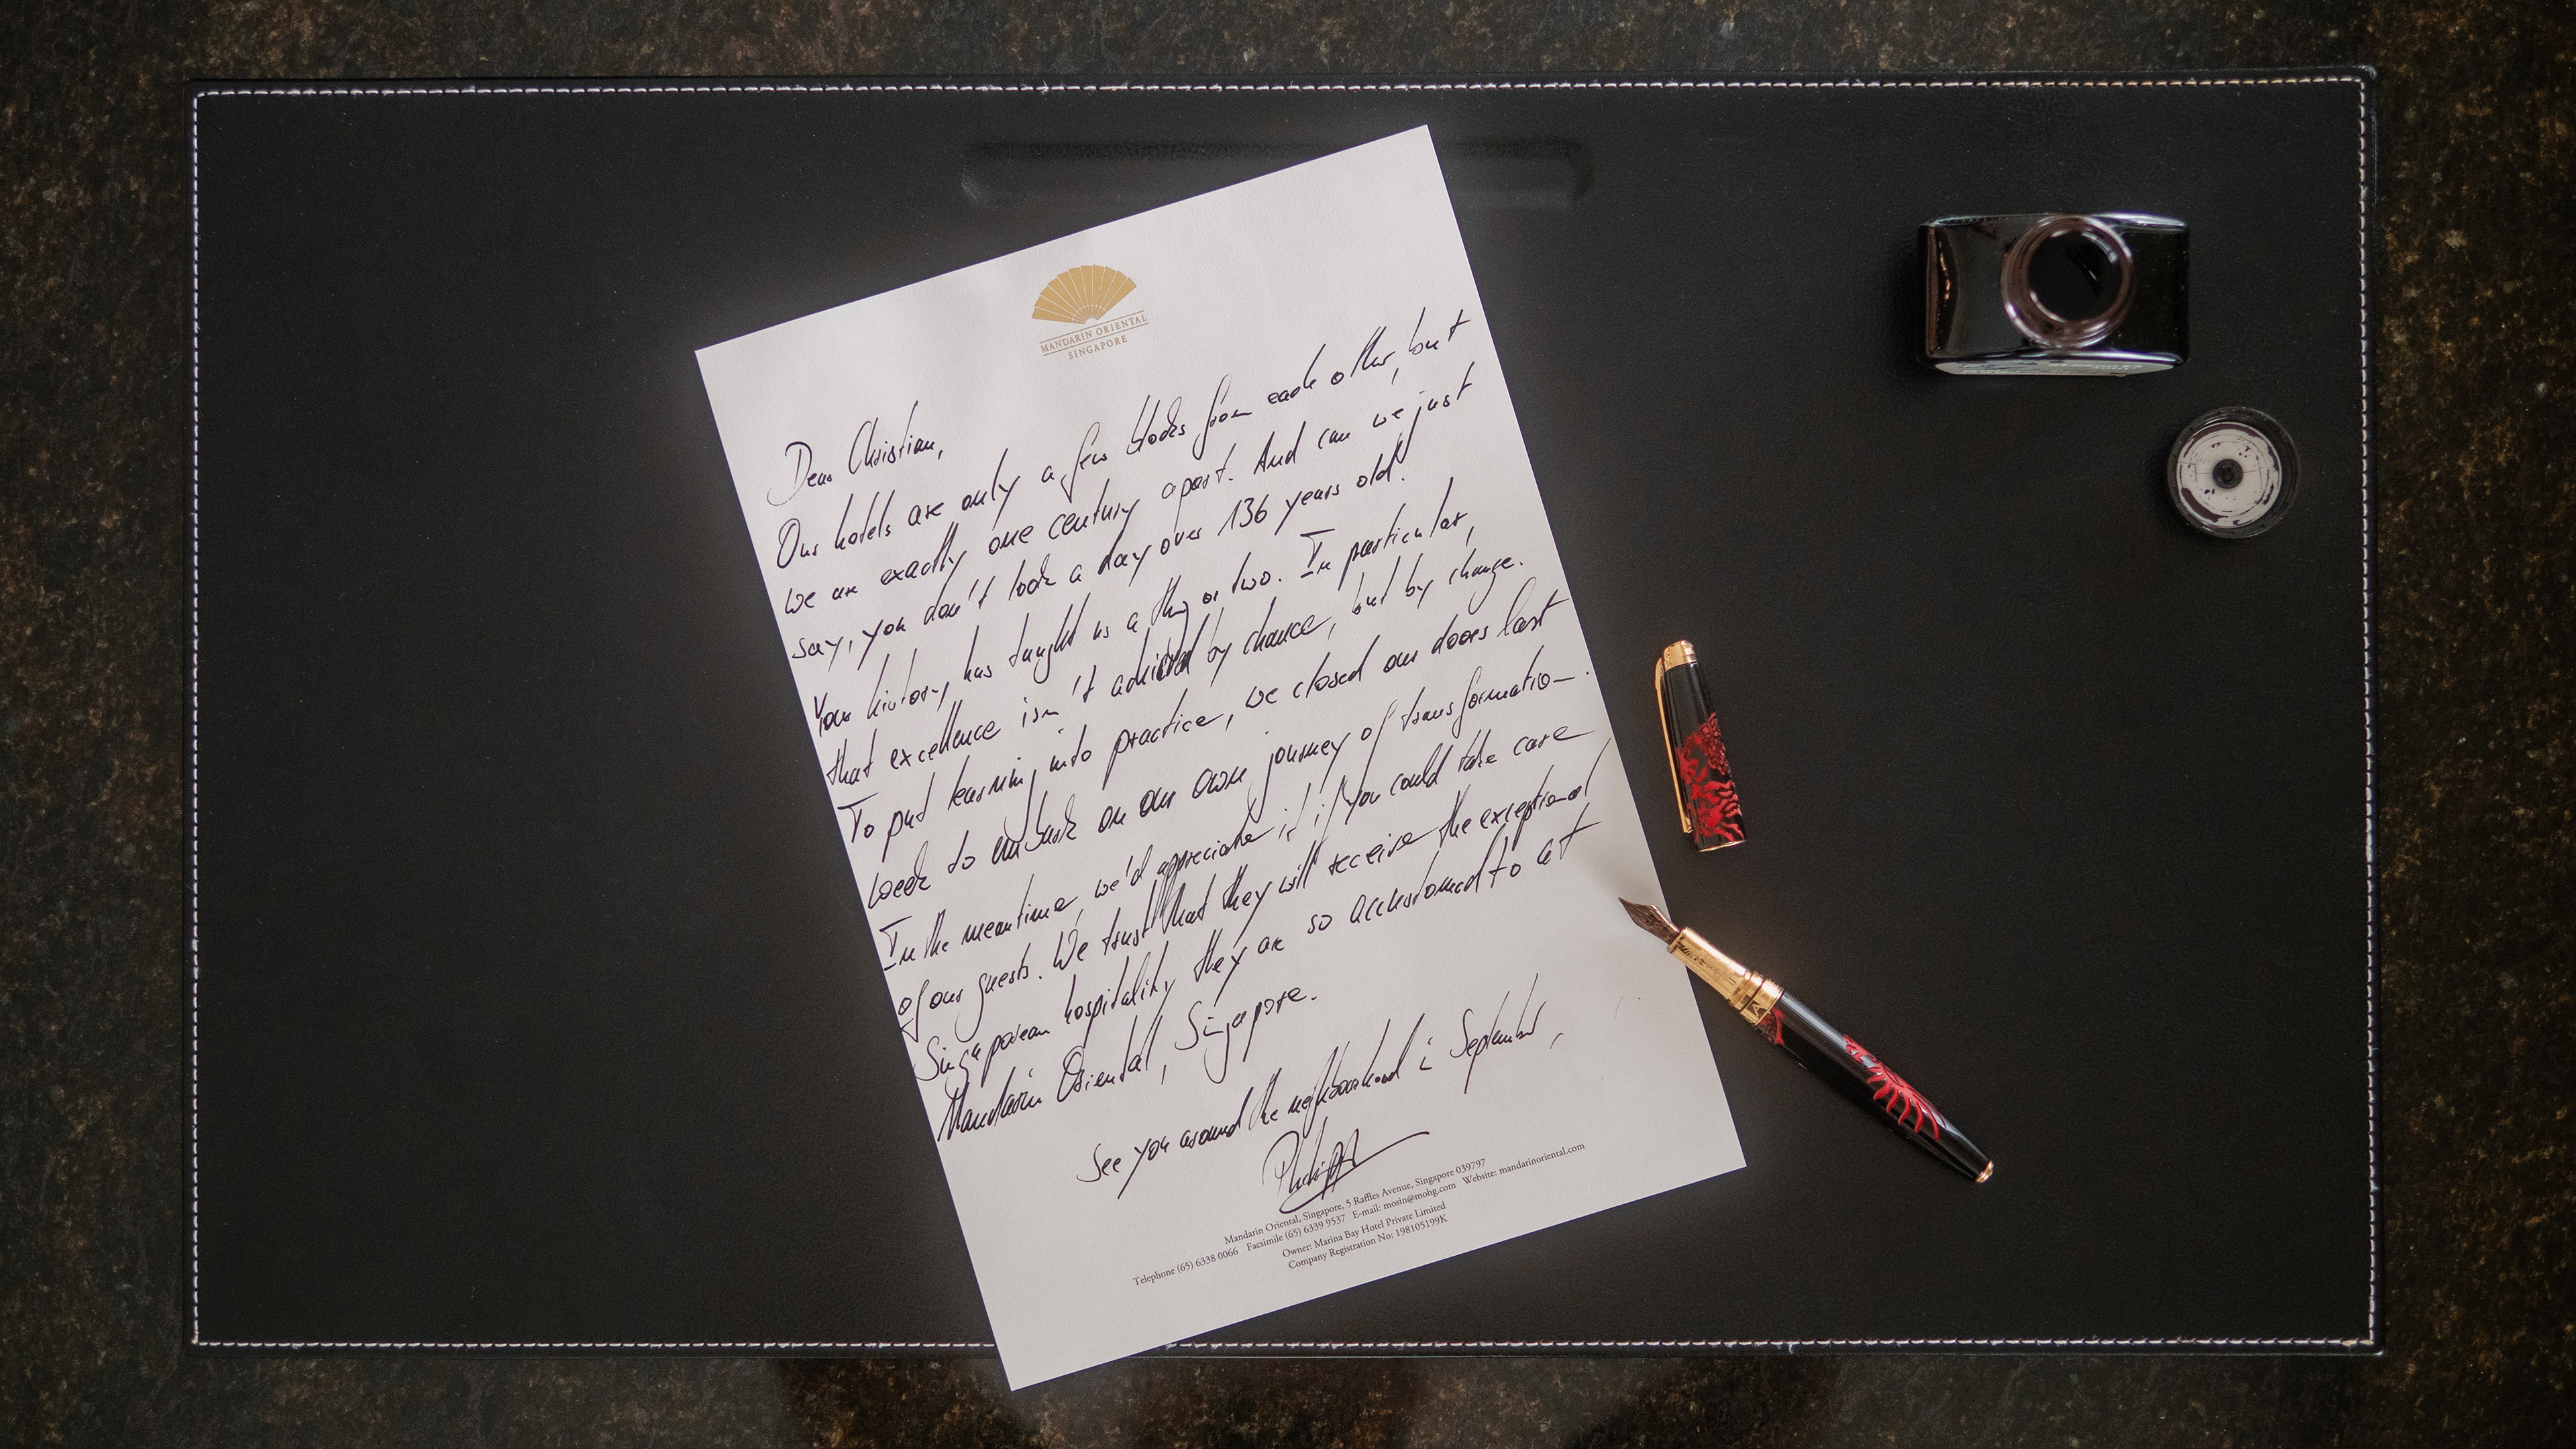 MANDARIN ORIENTAL
SINGAPORE
Dear Christian,
Our hotels are only a few blocks from each other, but
we are exactly one century apart. And can we just
say, you don't look a day over 136 years old!
Your history has taught us a thing or two. In particular,
that excellence isn't achieved by chance, but by change.
To put learning into practice, we closed our doors last
week to embark on our own journey of transformation.
In the meantime, we'd appreciate it if you could take care
of our guests. We trust that they will receive the exceptional
Singaporean hospitality they are so accustomed to at
Mandarin Oriental, Singapore.
See you around the neighbourhood in September,
Philipp
Mandarin Oriental, Singapore, 5 Raffles Avenue, Singapore 039797
Telephone (65) 6338 0066 Facsimile (65) 6339 9537 E-mail: mosin@mohg.com Website: mandarinoriental.com
Owner: Marina Bay Hotel Private Limited
Company Registration No: 198105199K